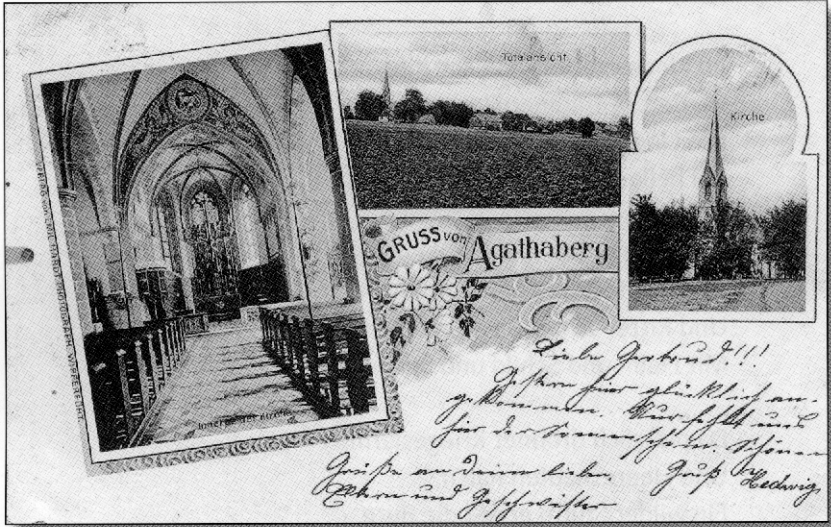 Totalansicht
Kirche
GRUSS von Agathaberg
Inneres der Kirche
PHOTOGRAPH, WIPPERFÜRT.
Liebe Gertrud!!!
Gestern hier glücklich an-
gekommen. Nur fehlt uns
hier der Sonnenschein. Schönen
Gruß Hedwig
Grüße an Deine lieben
Eltern und Geschwister